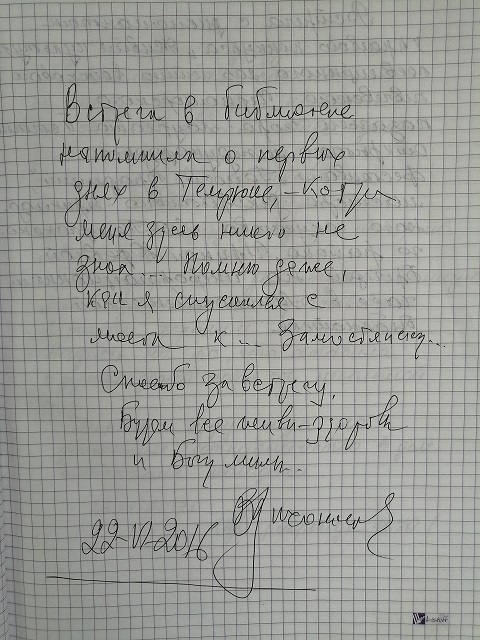 Встреча в библиотеке
напомнила о первых
днях в Темрюке, - когда
меня здесь никто не
знал... Помню даже,
как я спускался с
моста к... Замостянску...
Спасибо за встречу.
Будем все живы-здоровы
и Богу милы...
22-VI-2016